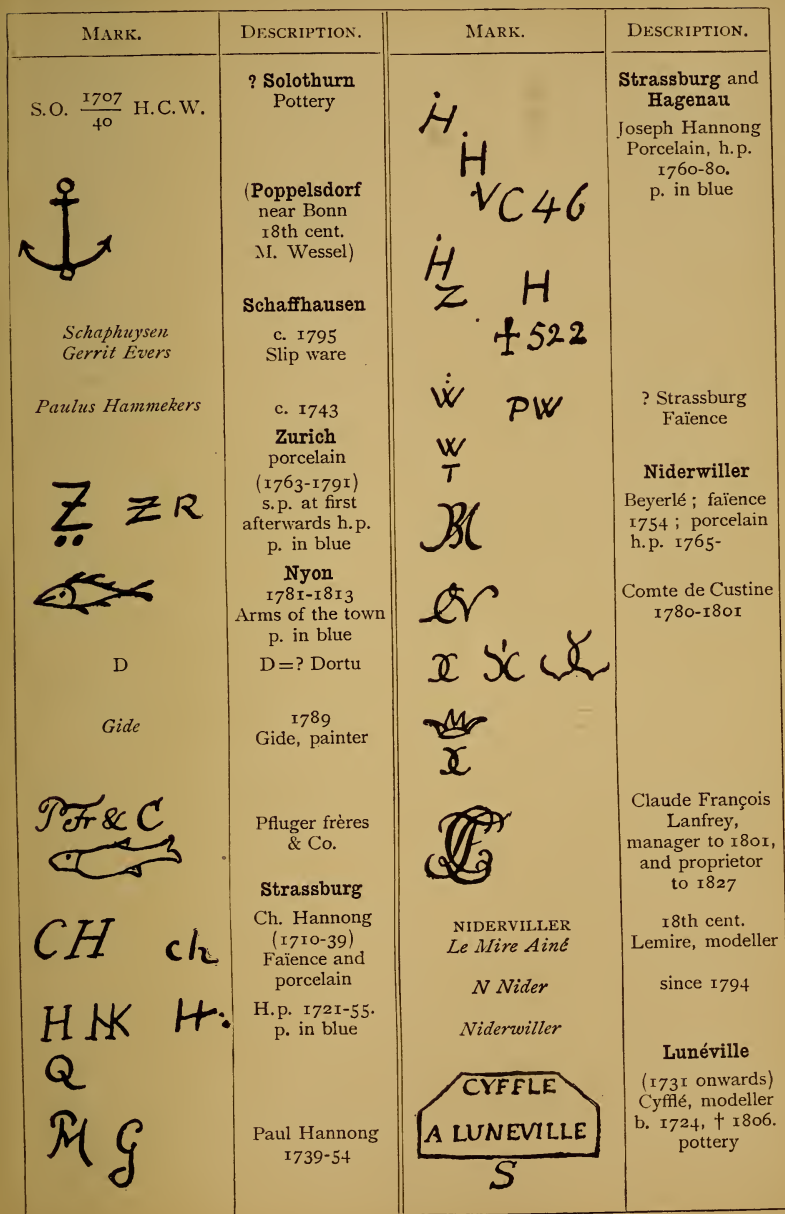 MARK.
DESCRIPTION.
S.O. 1707/40 H.C.W.
? Solothurn
Pottery
(Poppelsdorf
near Bonn
18th cent.
M. Wessel)
Schaffhausen
Schaphuysen
Gerrit Evers
c. 1795
Slip ware
Paulus Hammekers
c. 1743
Zurich
porcelain
(1763-1791)
s.p. at first
afterwards h.p.
p. in blue
Z ZR
Nyon
1781-1813
Arms of the town
p. in blue
D
D=? Dortu
Gide
1789
Gide, painter
PFr & C
Pfluger frères
& Co.
Strassburg
CH ch
Ch. Hannong
(1710-39)
Faïence and
porcelain
H HK H:
H.p. 1721-55.
p. in blue
Q
G
Paul Hannong
1739-54
MARK.
DESCRIPTION.
Strassburg and
Hagenau
Joseph Hannong
Porcelain, h.p.
1760-80.
p. in blue
H.
H
VC46
H
Z H
522
W PW
? Strassburg
Faïence
W
T
Niderwiller
Beyerlé ; faïence
1754 ; porcelain
h.p. 1765-
Comte de Custine
1780-1801
Claude François
Lanfrey,
manager to 1801,
and proprietor
to 1827
NIDERVILLER
Le Mire Ainé
18th cent.
Lemire, modeller
N Nider
since 1794
Niderwiller
Lunéville
(1731 onwards)
Cyfflé, modeller
b. 1724, † 1806.
pottery
CYFFLE
A LUNEVILLE
S